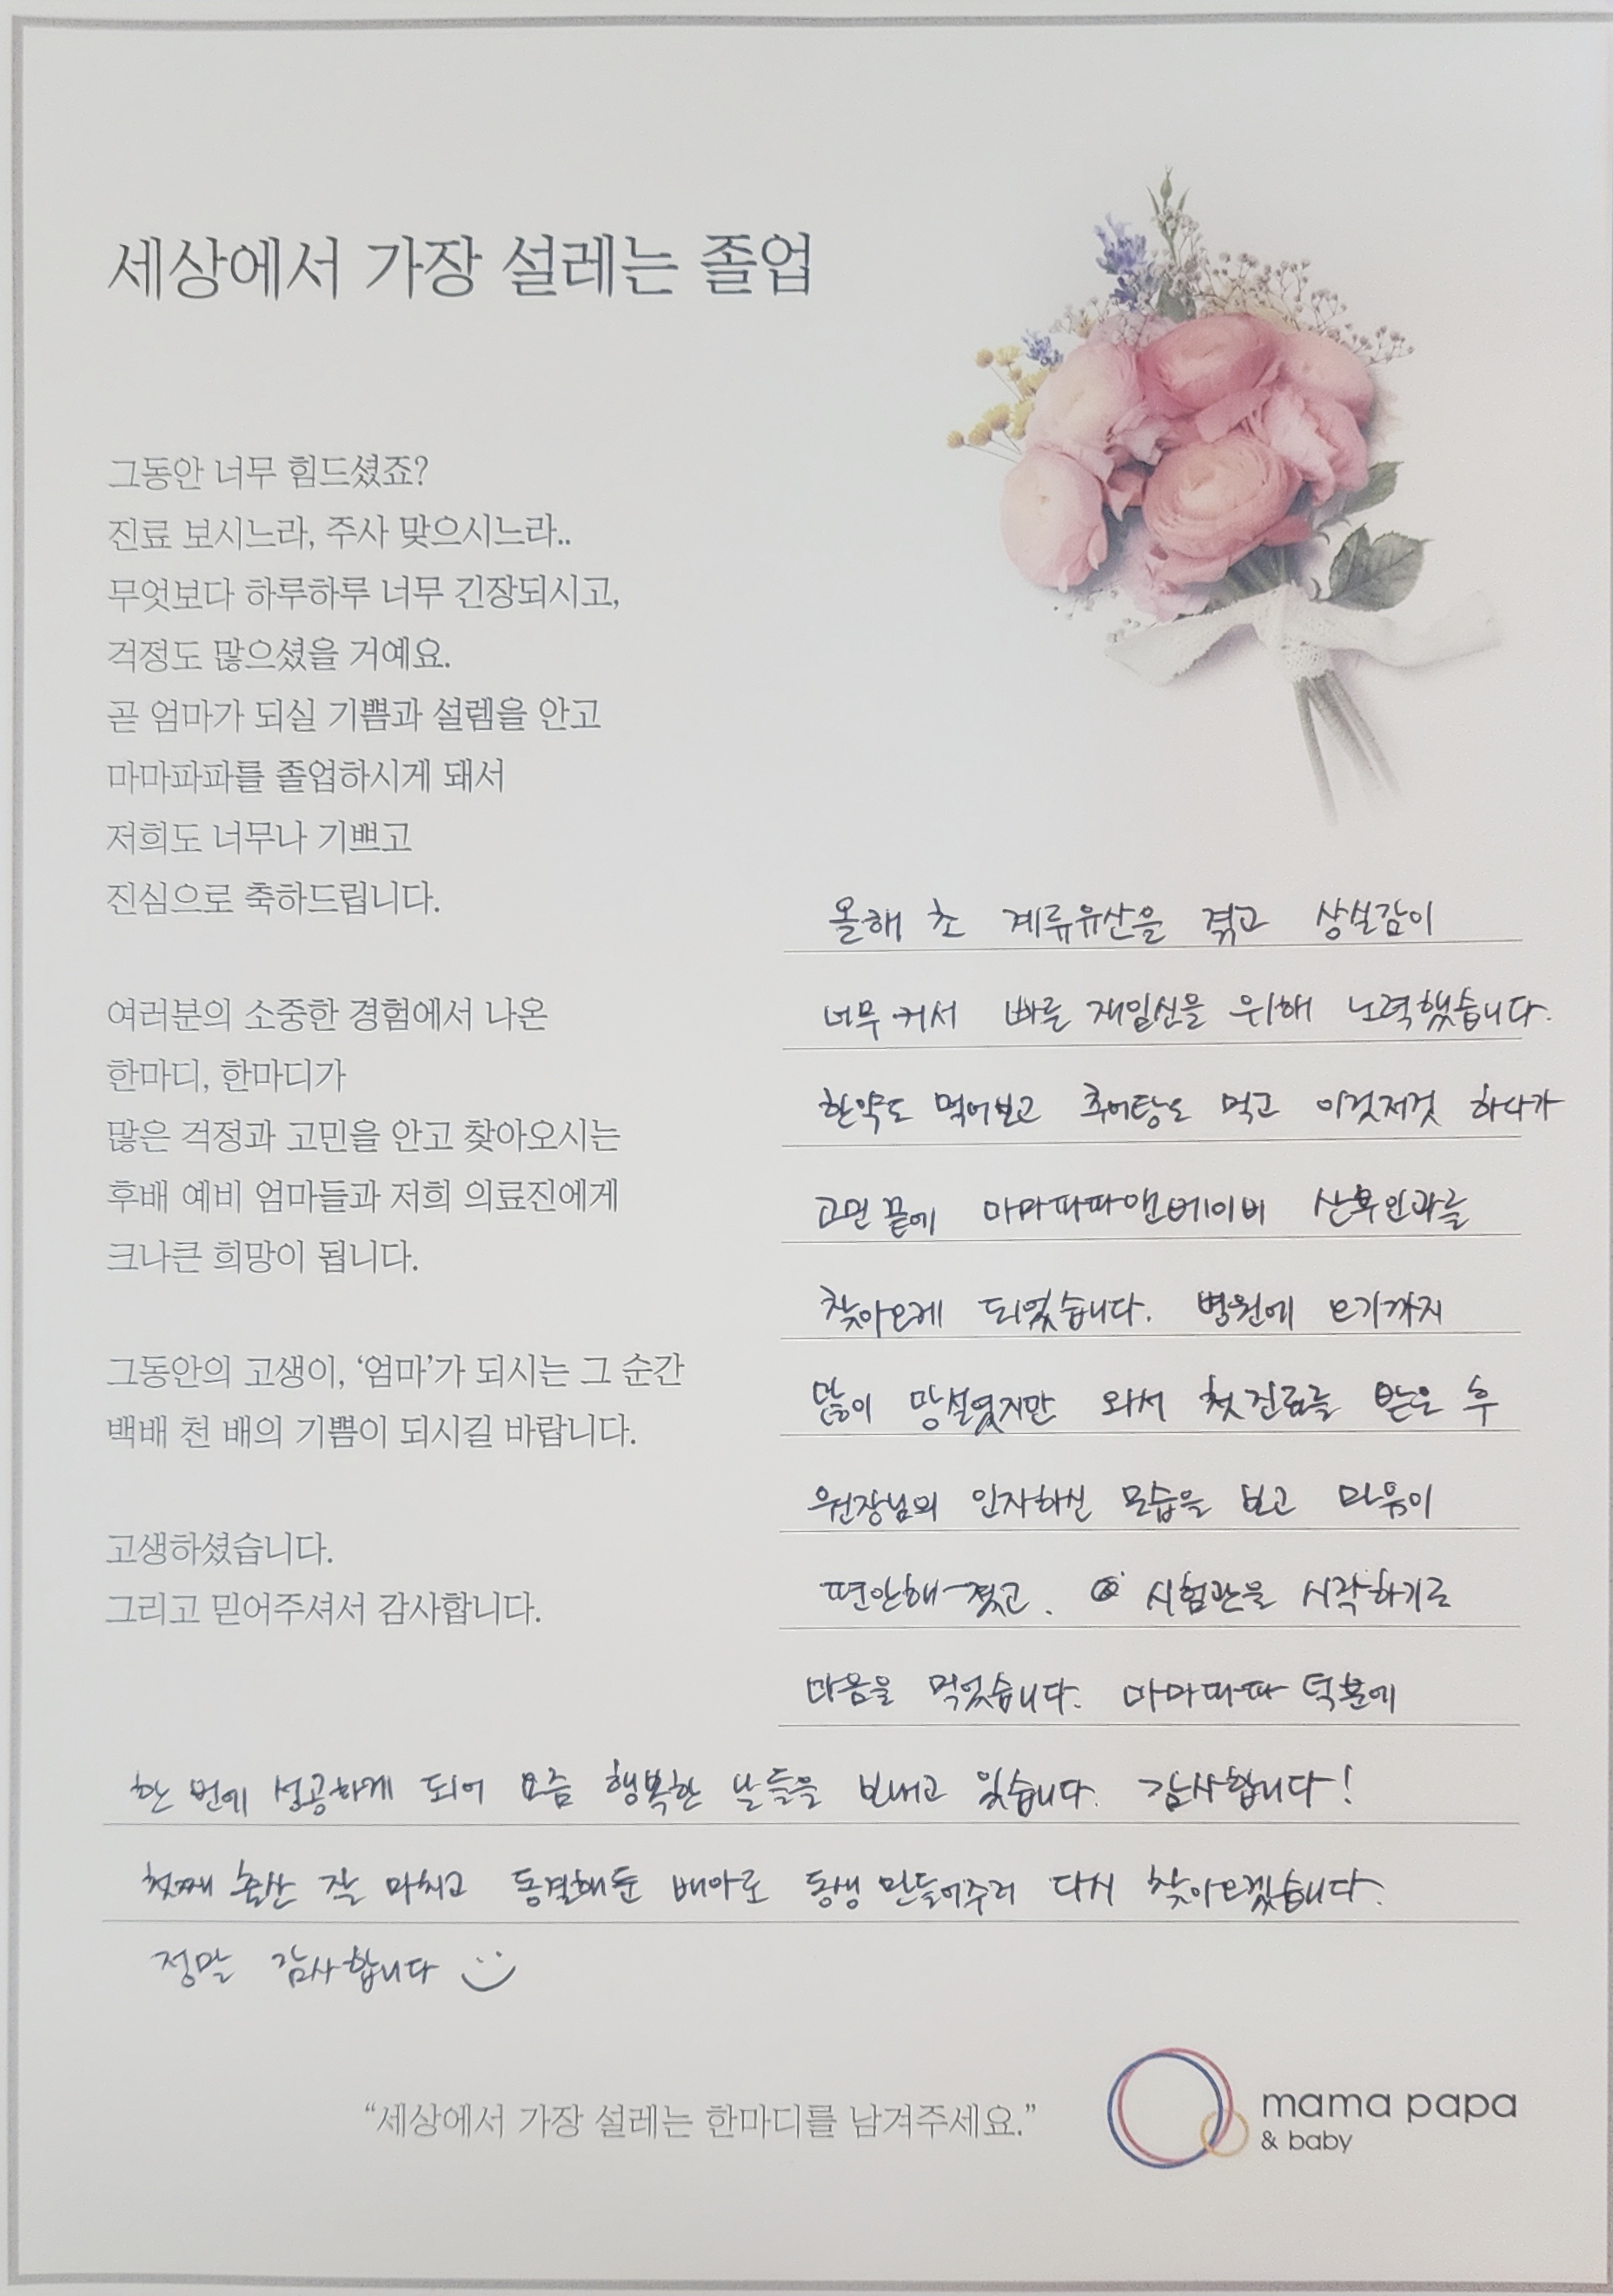 세상에서 가장 설레는 졸업
그동안 너무 힘드셨죠?
진료 보시느라, 주사 맞으시느라..
무엇보다 하루하루 너무 긴장되시고,
걱정도 많으셨을 거예요.
곧 엄마가 되실 기쁨과 설렘을 안고
마마파파를 졸업하시게 돼서
저희도 너무나 기쁘고
진심으로 축하드립니다.
여러분의 소중한 경험에서 나온
한마디, 한마디가
많은 걱정과 고민을 안고 찾아오시는
후배 예비 엄마들과 저희 의료진에게
크나큰 희망이 됩니다.
그동안의 고생이, ‘엄마’가 되시는 그 순간
백배 천 배의 기쁨이 되시길 바랍니다.
고생하셨습니다.
그리고 믿어주셔서 감사합니다.
올해 초 계류유산을 겪고 상실감이
너무 커서 빠른 재임신을 위해 노력했습니다.
한약도 먹어보고 추어탕도 먹고 이것저것 하다가
고민 끝에 마마파파앤베이비 산부인과를
찾아오게 되었습니다. 병원에 오기까지
많이 망설였지만 와서 첫 진료를 받은 후
원장님의 인자하신 모습을 보고 마음이
편안해졌고. 시험관을 시작하기로
마음을 먹었습니다. 마마파파 덕분에
한 번에 성공하게 되어 요즘 행복한 날들을 보내고 있습니다. 감사합니다!
첫째 출산 잘 마치고 동결해둔 배아로 동생 만들어주러 다시 찾아오겠습니다.
정말 감사합니다
“세상에서 가장 설레는 한마디를 남겨주세요.”
mama papa
& baby